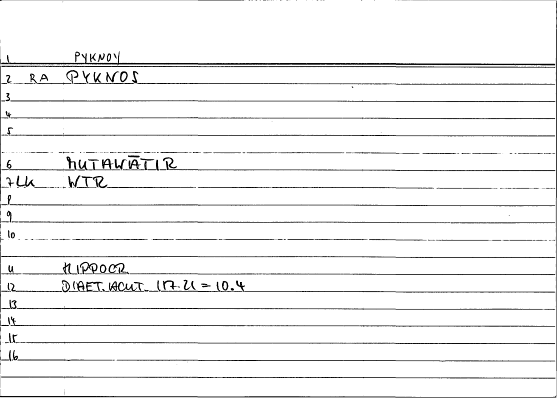 1 PYKNOY
2 RA PYKNOS
3
4
5
6 MUTAWĀTIR
7 LK WTR
8
9
10
11 HIPPOCR
12 DIAET. ACUT. = 10.4
13
14
15
16